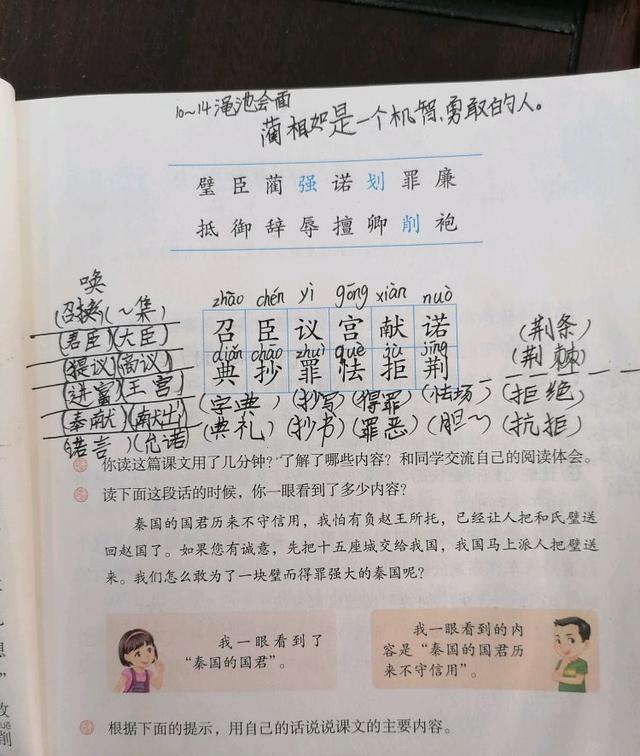 10~14渑池会面
蔺相如是一个机智、勇敢的人。
璧 臣 蔺 强 诺 划 罪 廉
抵 御 辞 辱 擅 卿 削 袍
唤
(召集)(~集)
(君臣)(大臣)
(提议)(商议)
(王宫)
(奉献)(献出)
(诺言)(允诺)
zhāo chén yì gōng xiàn nuò
召 臣 议 宫 献 诺
diǎn chāo zhuì què jù jīng
典 抄 罪 怯 拒 荆
(荆条)
(荆棘)
(字典)(抄写)(得罪)(怯场)(拒绝)
(典礼)(抄书)(罪恶)(胆~)(抗拒)
你读这篇课文用了几分钟?了解了哪些内容?和同学交流自己的阅读体会。
读下面这段话的时候,你一眼看到了多少内容?
秦国的国君历来不守信用,我怕有负赵王所托,已经让人把和氏璧送
回赵国了。如果您有诚意,先把十五座城交给我国,我国马上派人把璧送
来。我们怎么敢为了一块璧而得罪强大的秦国呢?
我一眼看到了
“秦国的国君”。
我一眼看到的内
容是“秦国的国君历
来不守信用”。
根据下面的提示,用自己的话说说课文的主要内容。